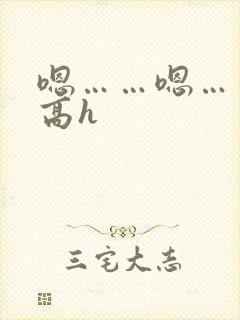 嗯... ...嗯...
高h
三宅大志